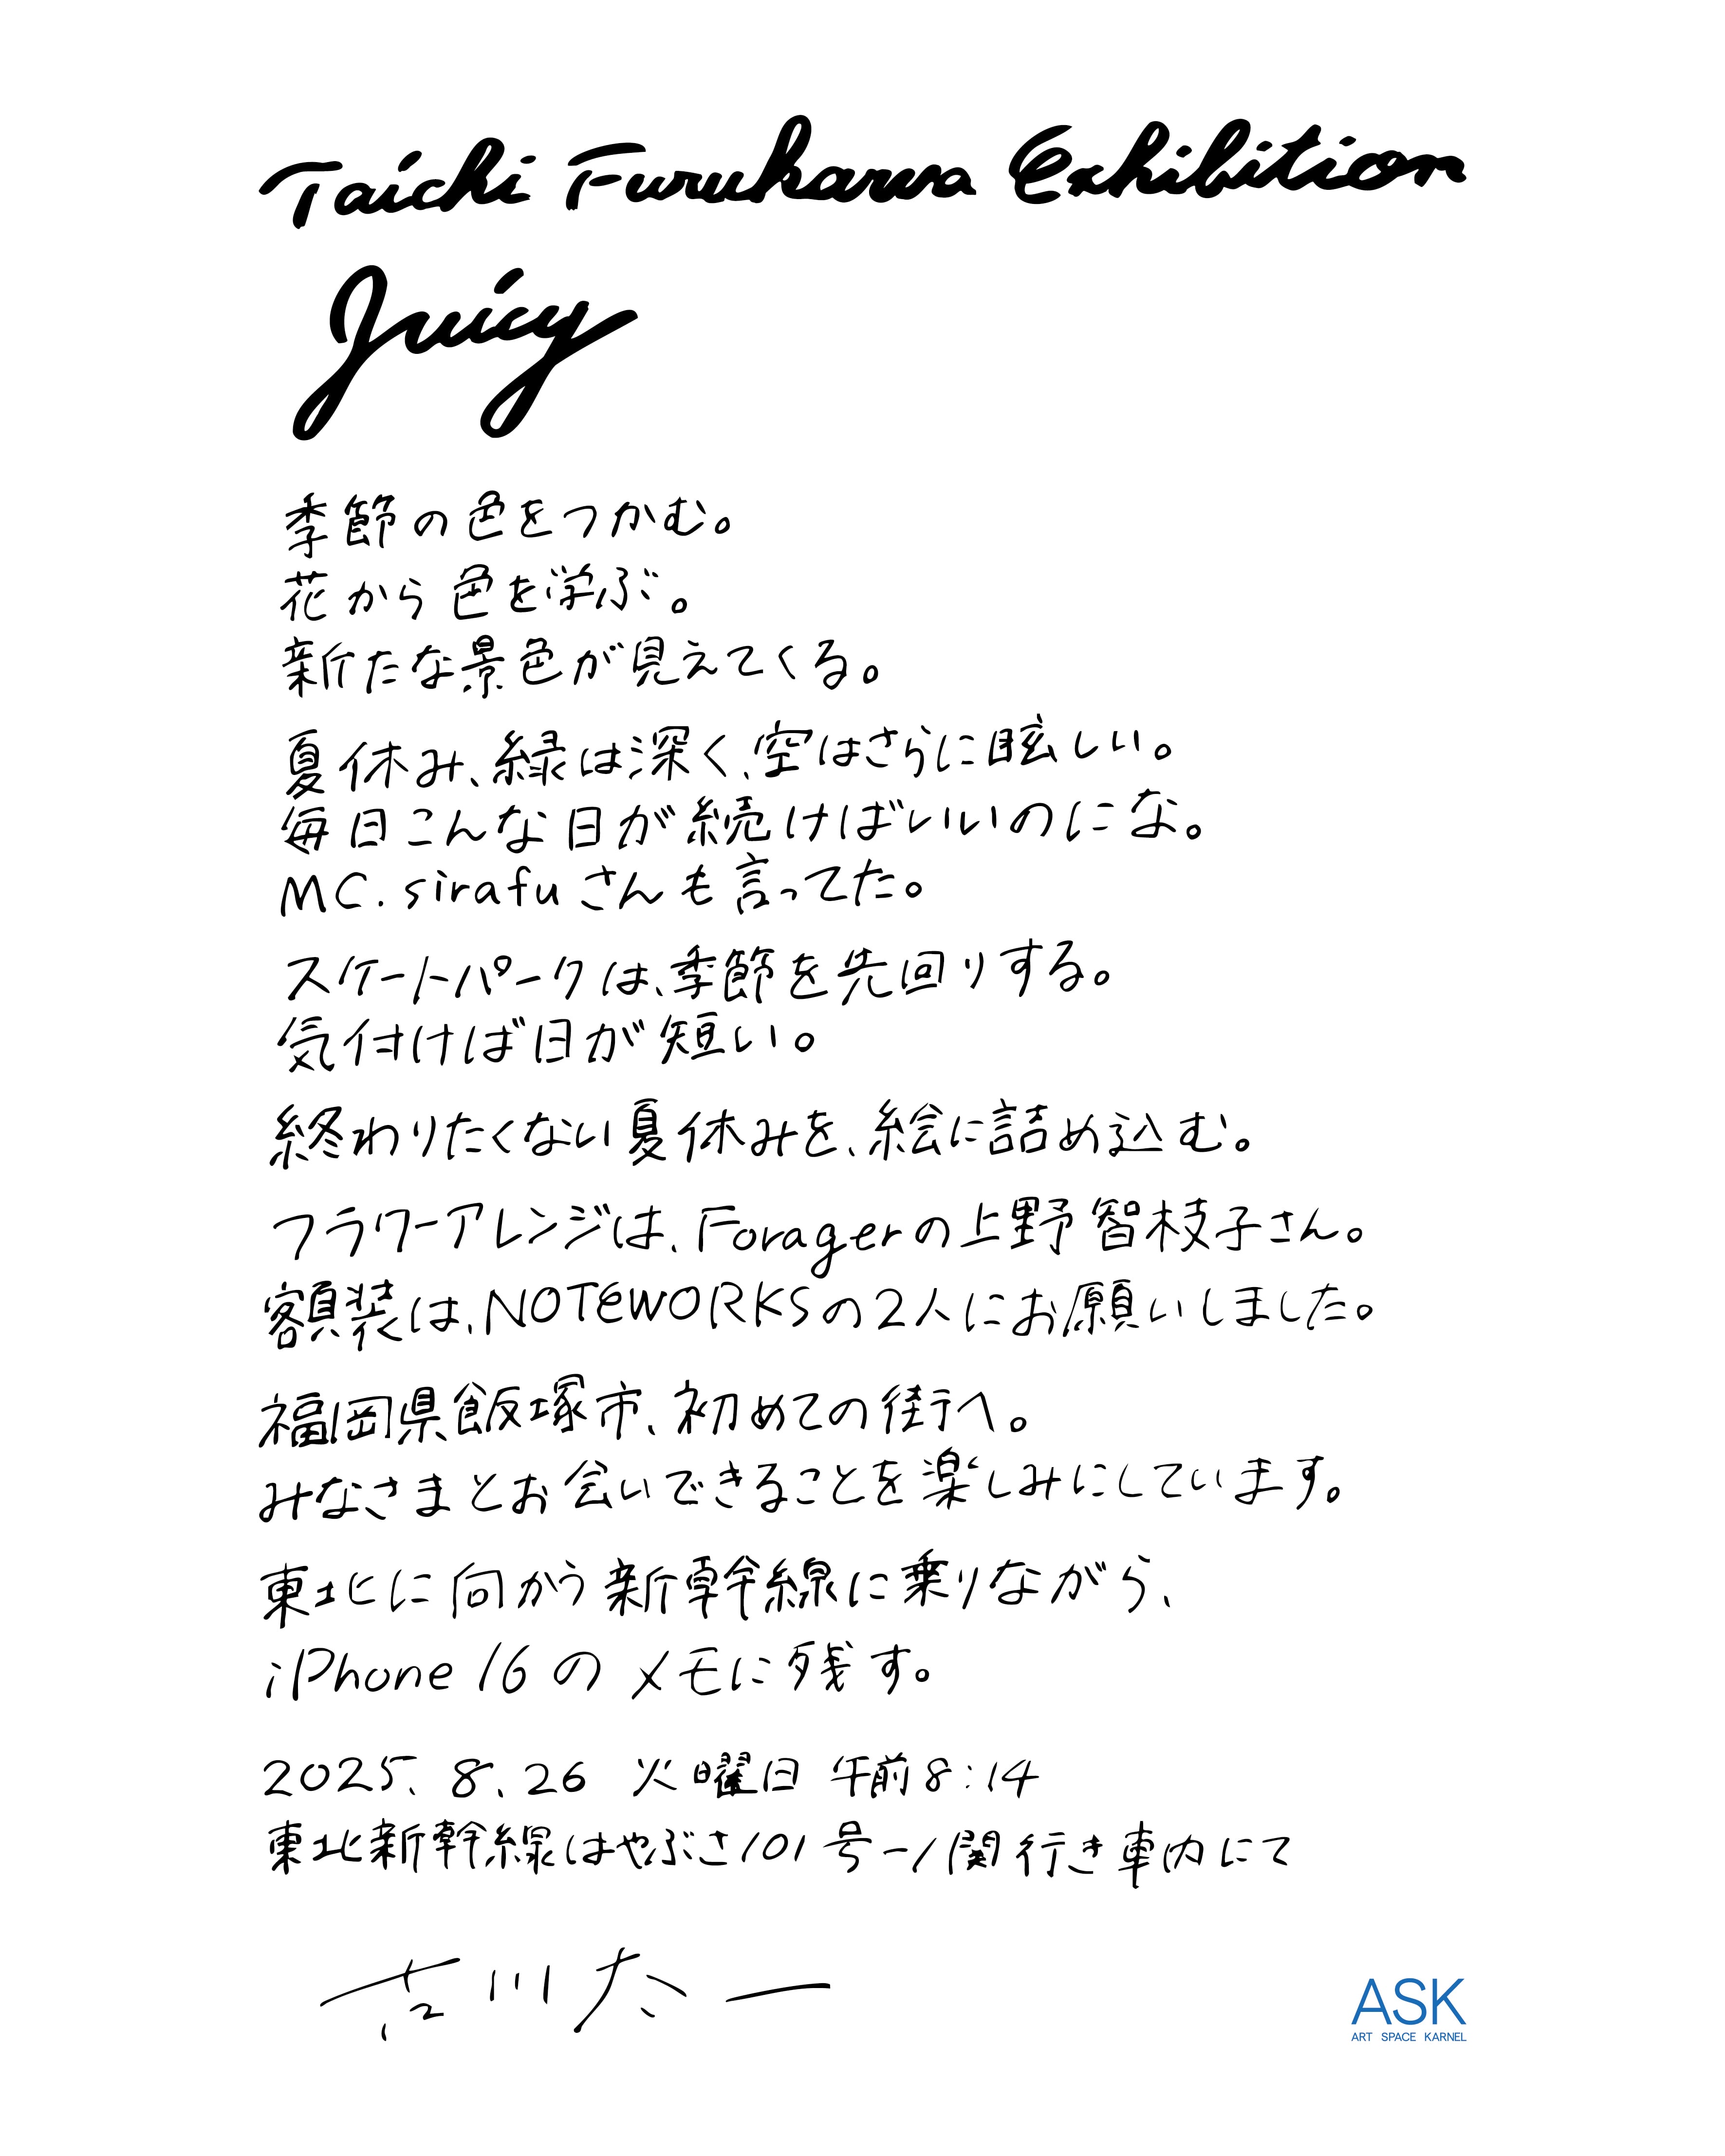 Taichi Furukawa Exhibition
Juicy
季節の色をつかむ。
花から色を学ぶ。
新たな景色が見えてくる。
夏休み、緑は深く、空はさらに眩しい。
毎日こんな日が続けばいいのにな。
MC.sirafuさんも言ってた。
スケートパークは、季節を先回りする。
気付けば日が短い。
終わりたくない夏休みを、絵に詰め込む。
フラワーアレンジは、Foragerの上野智枝子さん。
額装は、NOTEWORKSの2人にお願いしました。
福岡県飯塚市、初めての街へ。
みなさまとお会いできることを楽しみにしています。
東北に向かう新幹線に乗りながら、
iPhone 16のメモに残す。
2025. 8. 26 火曜日 午前8:14
東北新幹線はやぶさ101号一ノ関行き車内にて
古川太一
ASK
ART SPACE KARNEL